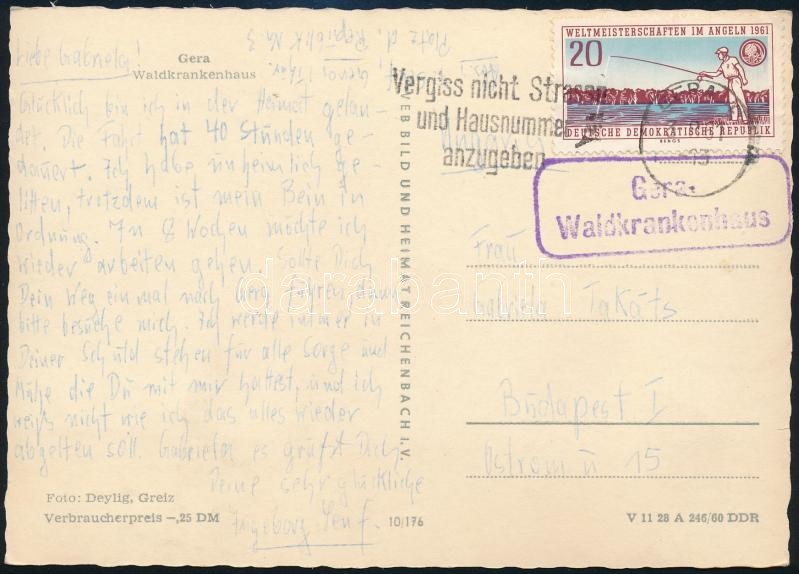 Liebe Gabriela!
Gera
Waldkrankenhaus
Glücklich bin ich in der Heimat gelan-
det. Die Fahrt hat 40 Stunden ge-
dauert. Ich habe unheimlich ge-
litten, trotzdem ist mein Bein in
Ordnung. In 8 Wochen möchte ich
wieder arbeiten gehen. Sollte Dich
Dein Weg einmal nach Gera führen, dann
bitte besuche mich. Ich werde immer in
Deiner Schuld stehen für alle Sorge und
Mühe die Du mit mir hattest, und ich
weiß nicht wie ich das alles wieder
abgelten soll. Gabriela es grüßt Dich
Deine sehr glückliche
Ingeborg Senf.
Platz d. Republik Nr 3
Foto: Deylig, Greiz
Verbraucherpreis –,25 DM
10/176
VEB BILD UND HEIMAT REICHENBACH I. V.
WELTMEISTERSCHAFTEN IM ANGELN 1961
20
DEUTSCHE DEMOKRATISCHE REPUBLIK
Vergiss nicht Strassen
und Hausnummer
anzugeben
GERA
Gera-
Waldkrankenhaus
Frau
Gabriela Takáts
Budapest I
Ostrom u 15
V 11 28 A 246/60 DDR
darabanth